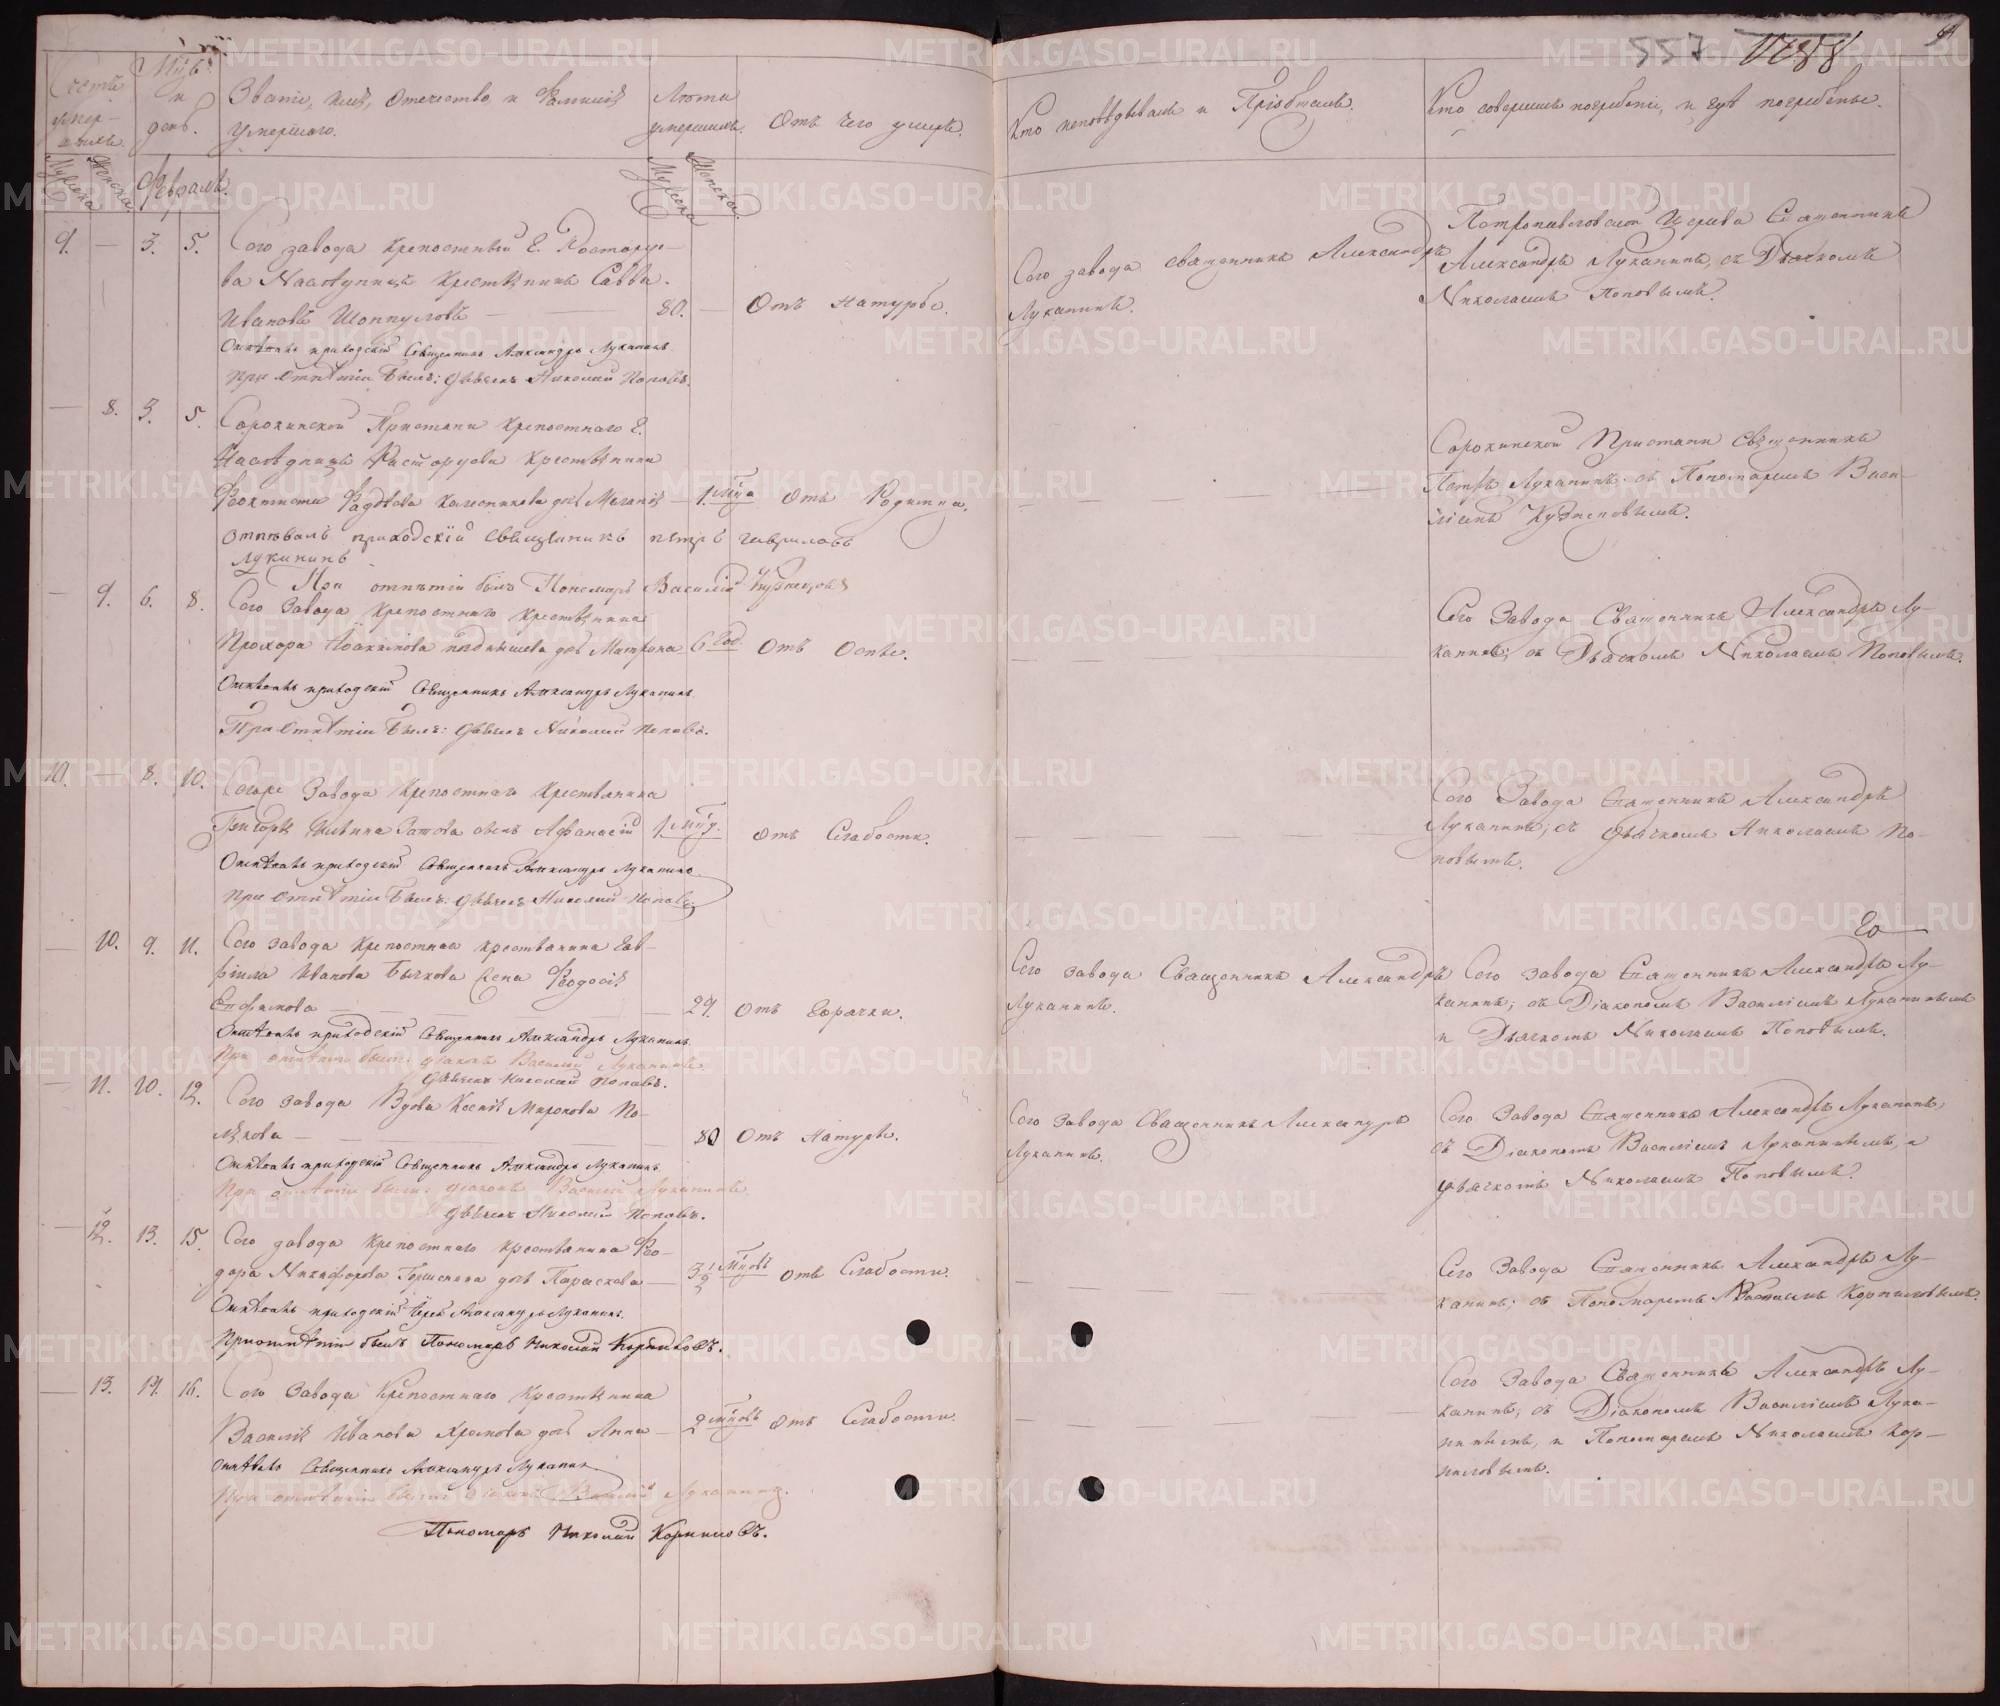 557
Счетъ умер-шихъ.
Мужеска
Женска.
Мѣс. и день.
Февраль.
Званіе, имя, отечество, и Фамилія умершаго.
Лѣта умершихъ.
Мужеска
Женска.
Отъ чего умеръ.
Кто исповѣдывалъ и Пріобщалъ.
Кто совершалъ погребеніе, и гдѣ погребены.
9. — 3. 5.
Сего завода крепостный Г. Росторгуе-
ва Наслѣдницъ Крестьянинъ Савва
Ивановъ — 80. — Отъ Натуры.
Отпѣвалъ приходскій Священникъ Александръ Луканинъ.
При Отпѣтіи Былъ: дьячекъ Николай Поповъ.
Сего завода священникъ Александръ
Луканинъ.
Петропавловской Церкви Священникъ
Александръ Луканинъ, съ Дьячкомъ
Николаемъ Поповымъ.
— 8. 3. 5.
Сорокинской Пристани крепостнаго Г.
Наслѣдницъ Расторгуева Крестьянина
Феоктиста Фадѣева Колесникова дочь Меланія — 1 мѣс. Отъ Родимца.
отпѣвалъ приходскій Священникъ петръ гавриловъ
Луканинъ
При отпѣтіи былъ Пономарь Василій Кузнецовъ
Сорокинской Пристани Священникъ
Петръ Луканинъ съ Пономаремъ Васи-
ліемъ Кузнецовымъ.
— 9. 6. 8.
Сего Завода Крепостнаго Крестьянина
Прохора дочь Матрона 6 год. Отъ Оспы.
Отпѣвалъ приходскій Священникъ Александръ Луканинъ.
При Отпѣтіи Былъ: дьячекъ Николай Поповъ.
Сего Завода Священникъ Александръ Лу-
канинъ; съ Дьячкомъ Николаемъ Поповымъ.
10. — 8. 10.
Завода Крепостнаго Крестьянина
Григорья сынъ Афанасій 1 мѣс. отъ Слабости.
Отпѣвалъ приходскій Священникъ Александръ Луканинъ
При Отпѣтіи Былъ: дьячекъ Николай Поповъ.
Сего Завода Священникъ Александръ
Луканинъ; съ дьячкомъ Николаемъ По-
повымъ.
— 10. 9. 11.
Сего завода Крепостнаго крестьянина Гав-
ріила Иванова Бычкова жена Феодосія
— 29. отъ Горячки.
Отпѣвалъ приходскій Священникъ Александръ Луканинъ.
При отпѣтіи были: діаконъ Василій Луканинъ.
дьячекъ Николай Поповъ.
Сего завода Священникъ Александръ
Луканинъ.
Сего завода Священникъ Александръ Лу-
канинъ; съ Діакономъ Василіемъ Луканинымъ
и Дьячкомъ Николаемъ Поповымъ.
— 11. 10. 12.
Сего завода Вдова Ксенія Миронова По-
лякова — 80 Отъ Натуры.
Отпѣвалъ приходскій Священникъ Александръ Луканинъ.
При отпѣтіи были: діаконъ Василій Луканинъ.
дьячекъ Николай Поповъ.
Сего Завода Священникъ Александръ
Луканинъ.
Сего Завода Священникъ Александръ Луканинъ,
съ Діакономъ Василіемъ Луканинымъ, и
дьячкомъ Николаемъ Поповымъ.
— 12. 13. 15.
Сего завода Крепостнаго Крестьянина Фео-
дора Никифорова дочь Параскева — 3 1/2 мѣсяцовъ отъ Слабости.
Отпѣвалъ приходскій Іерей Александръ Луканинъ.
При отпѣтіи былъ Пономарь Николай Корниловъ.
Сего Завода Священникъ Александръ Лу-
канинъ; съ Пономаремъ Корниловымъ.
— 13. 14. 16.
Сего Завода Крепостнаго Крестьянина
Василія Иванова дочь Анна — 2 мѣсяцовъ отъ Слабости.
отпѣвалъ Священникъ Александръ Луканинъ
При отпѣтіи были діаконъ Василій Луканинъ.
Пономарь Николай Корниловъ.
Сего Завода Священникъ Александръ Лу-
канинъ, съ Діакономъ Василіемъ Лука-
нинымъ, и Пономаремъ Николаемъ Кор-
ниловымъ.
METRIKI.GASO-URAL.RU